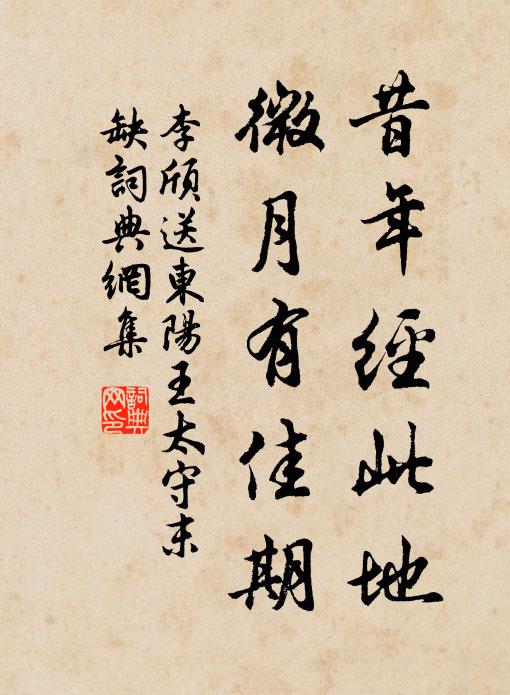 昔年經此地
微月有佳期
李頎送東陽王太守末
缺詞典網集
詞典
网印